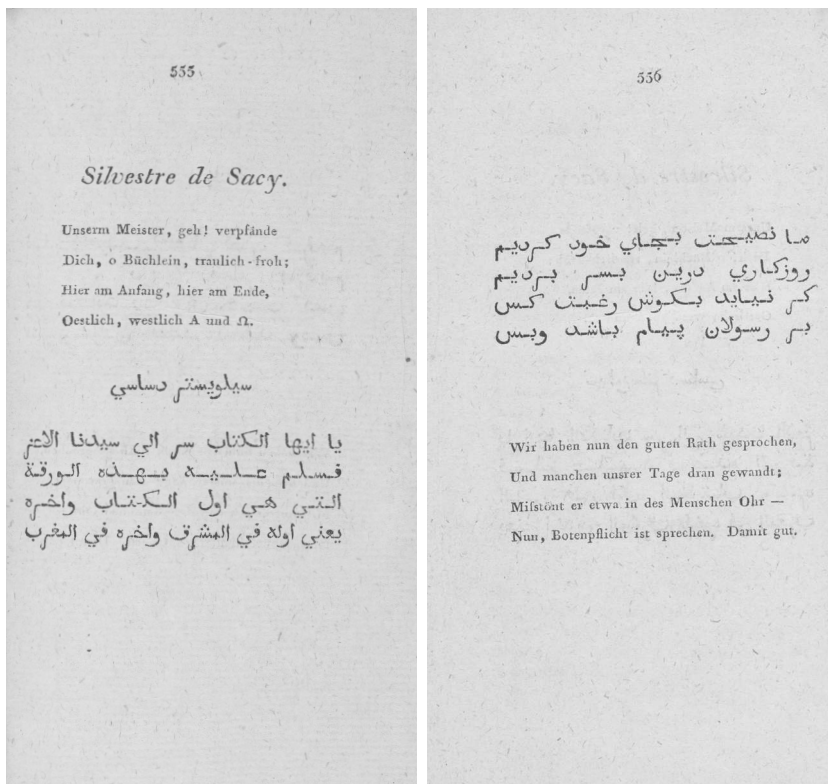 555
Silvestre de Sacy.
Unserm Meister, geh! verpfände
Dich, o Büchlein, traulich-froh;
Hier am Anfang, hier am Ende,
Oestlich, westlich A und Ω.
سيلويستر دساسي
يا ايها الكتاب سر الي سيدنا الاعز
فسلم عليه بهذه الورقة
التي هي اول الكتاب واخره
يعني اوله في المشرق واخره في المغرب
556
ما نصيحت بجاي خود كرديم
روزكاري درين بسر برديم
كر نيايد بكوش رغبت كس
بر رسولان پيام باشد وبس
Wir haben nun den guten Rath gesprochen,
Und manchen unsrer Tage dran gewandt;
Mifstönt er etwa in des Menschen Ohr —
Nun, Botenpflicht ist sprechen. Damit gut.